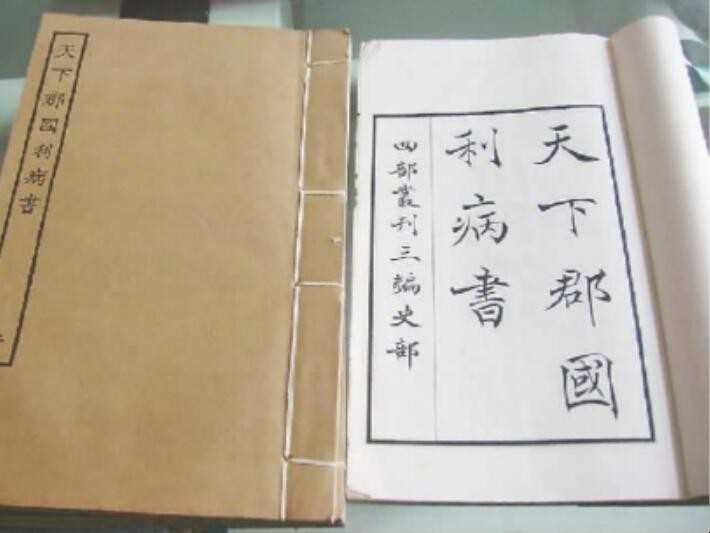 天下郡國利病書
天下郡國
利病書
四部叢刊三編史部